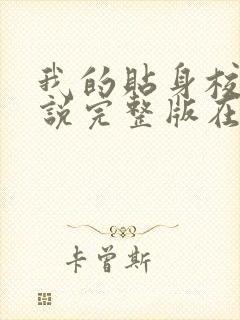 我的貼身校
說完整版在
卡曾斯